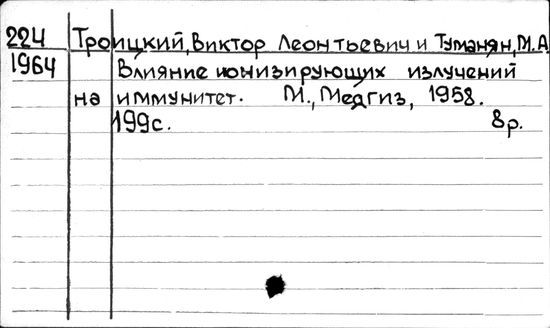 224 Троицкий, Виктор Леонтьевич и Туманян, М.А.
1964 Влияние ионизирующих излучений
на иммунитет. М., Медгиз, 1958.
199с. 8р.